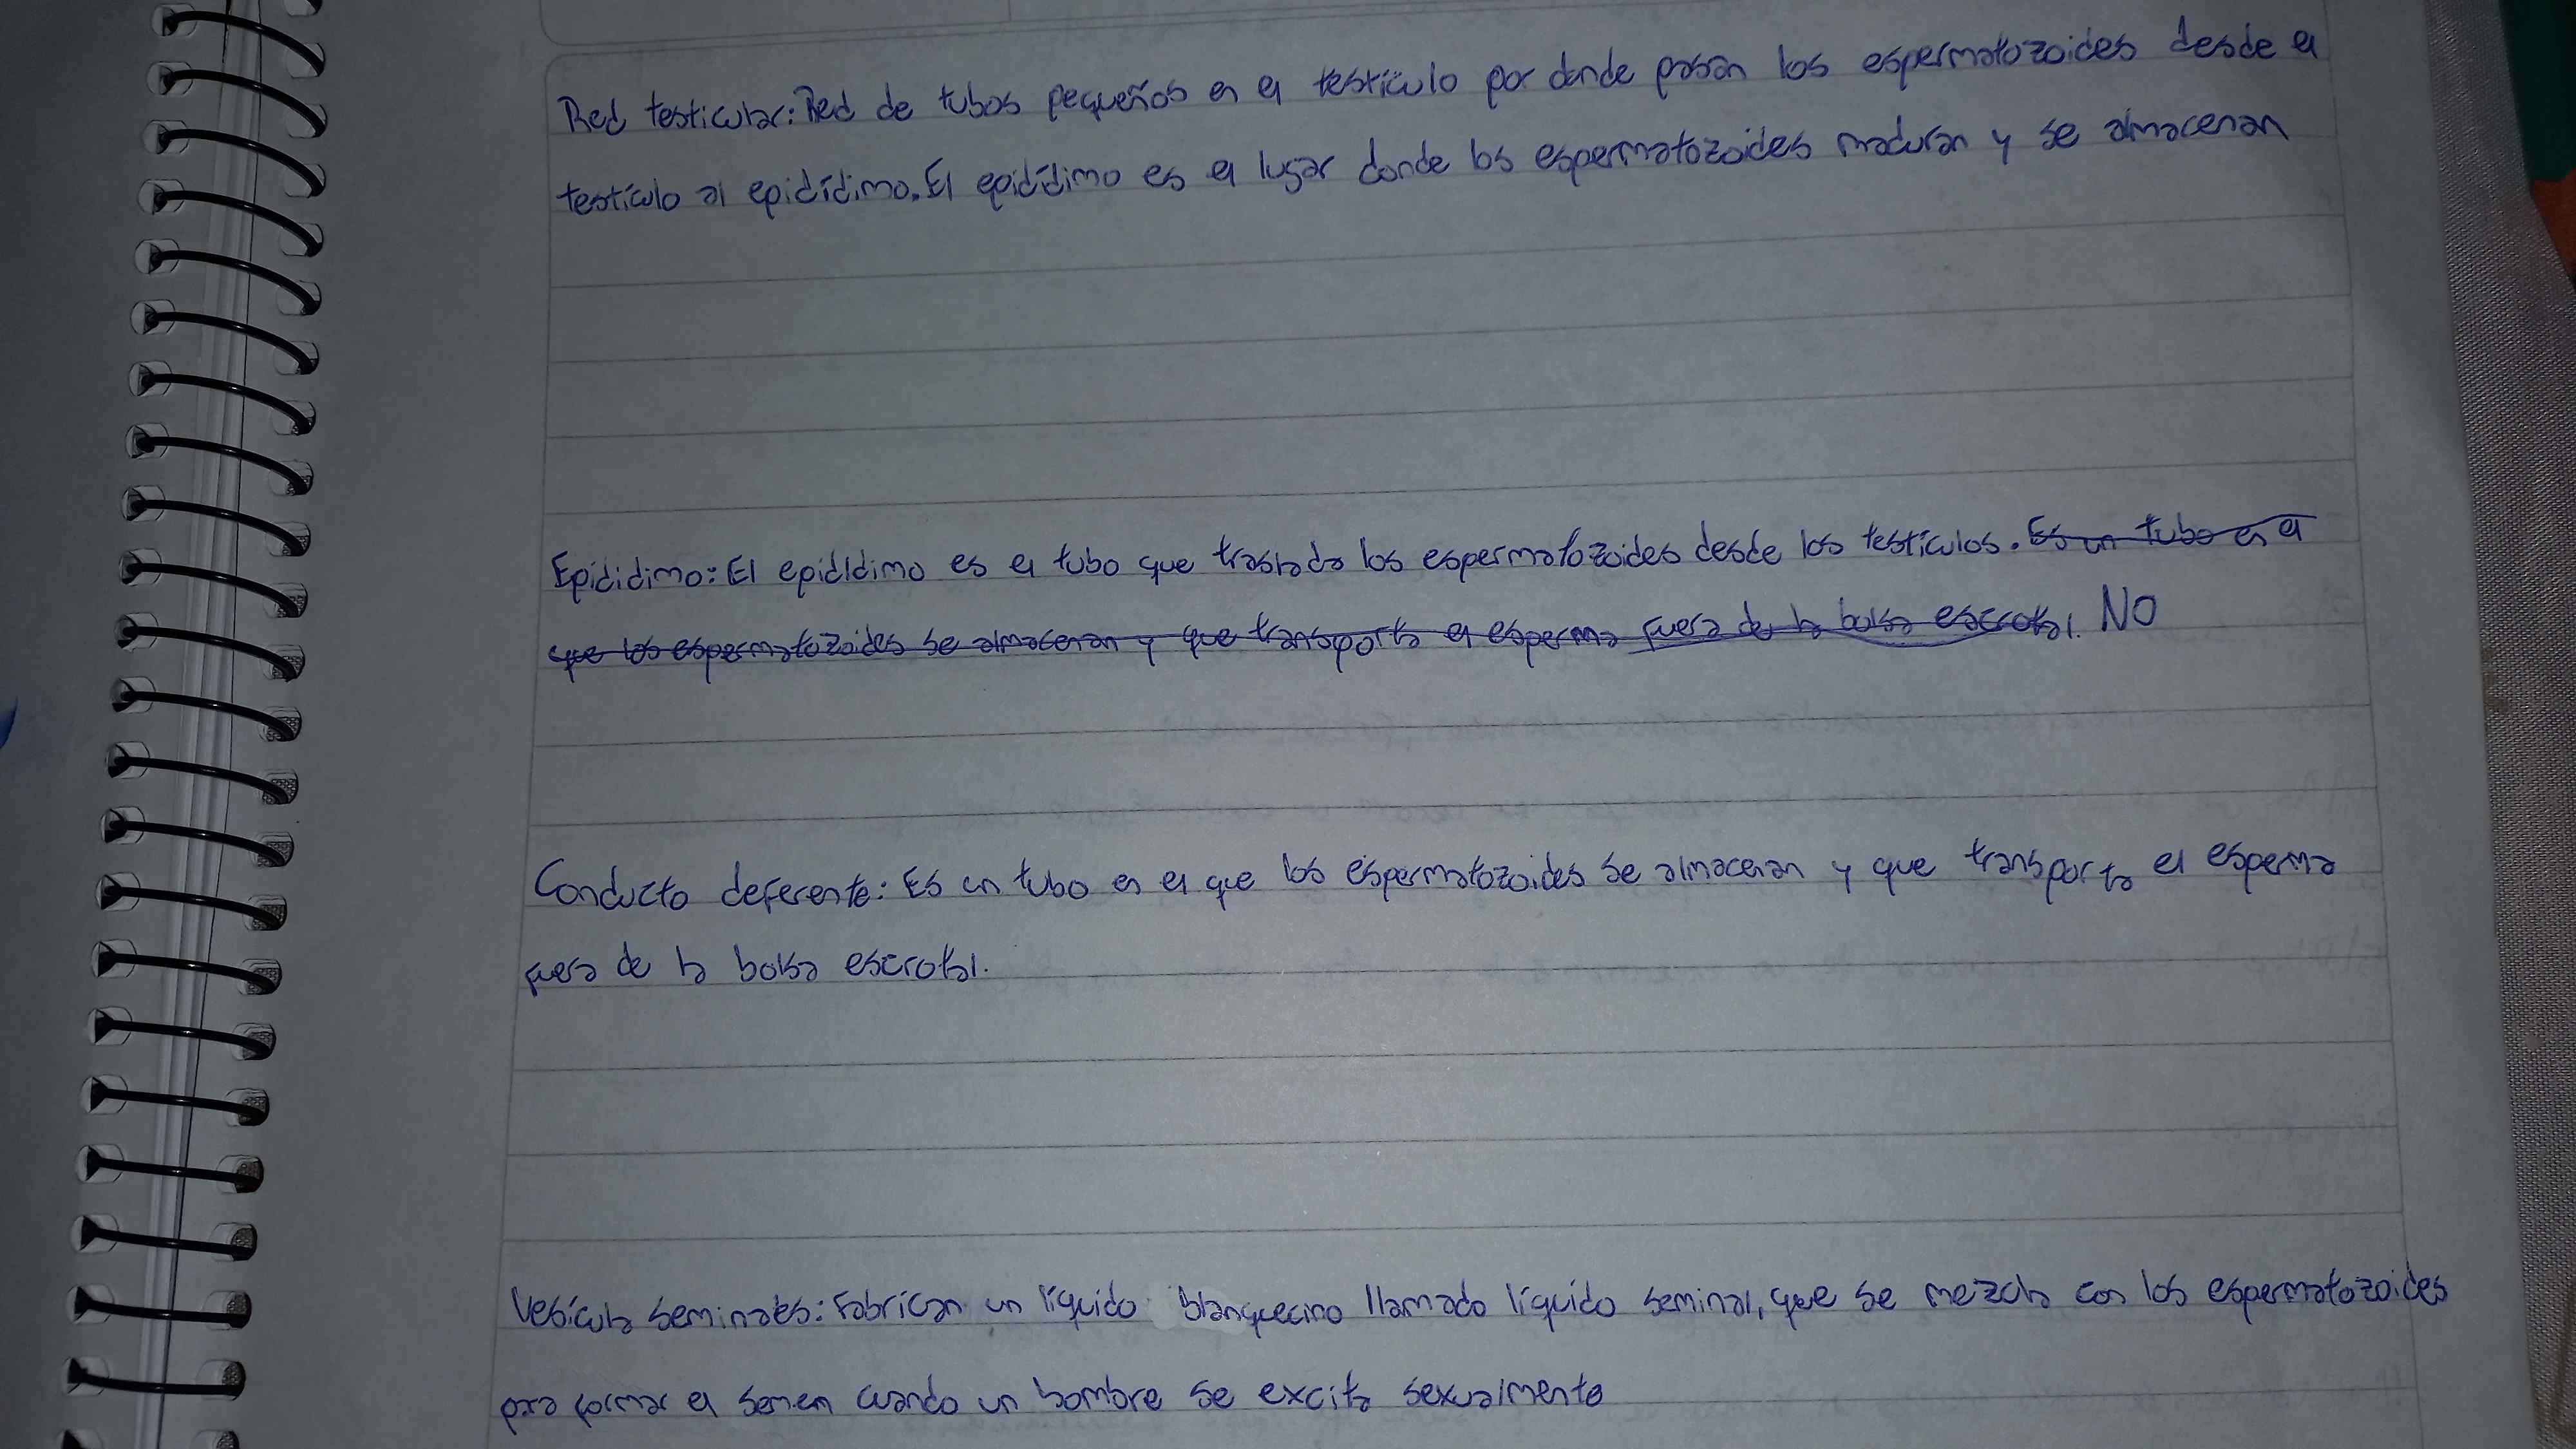 Red testicular: Red de tubos pequeños en el testículo por donde pasan los espermatozoides desde el
testículo al epidídimo. El epidídimo es el lugar donde los espermatozoides maduran y se almacenan
Epididimo: El epidídimo es el tubo que traslada los espermatozoides desde los testículos. Es un tubo en el
que los espermatozoides se almacenan y que transporta el esperma fuera de la bolsa escrotal. NO
Conducto deferente: Es un tubo en el que los espermatozoides se almacenan y que transporta el esperma
fuera de la bolsa escrotal.
Vesícula seminales: Fabrican un líquido blanquecino llamado líquido seminal, que se mezcla con los espermatozoides
para formar el semen cuando un hombre se excita sexualmente